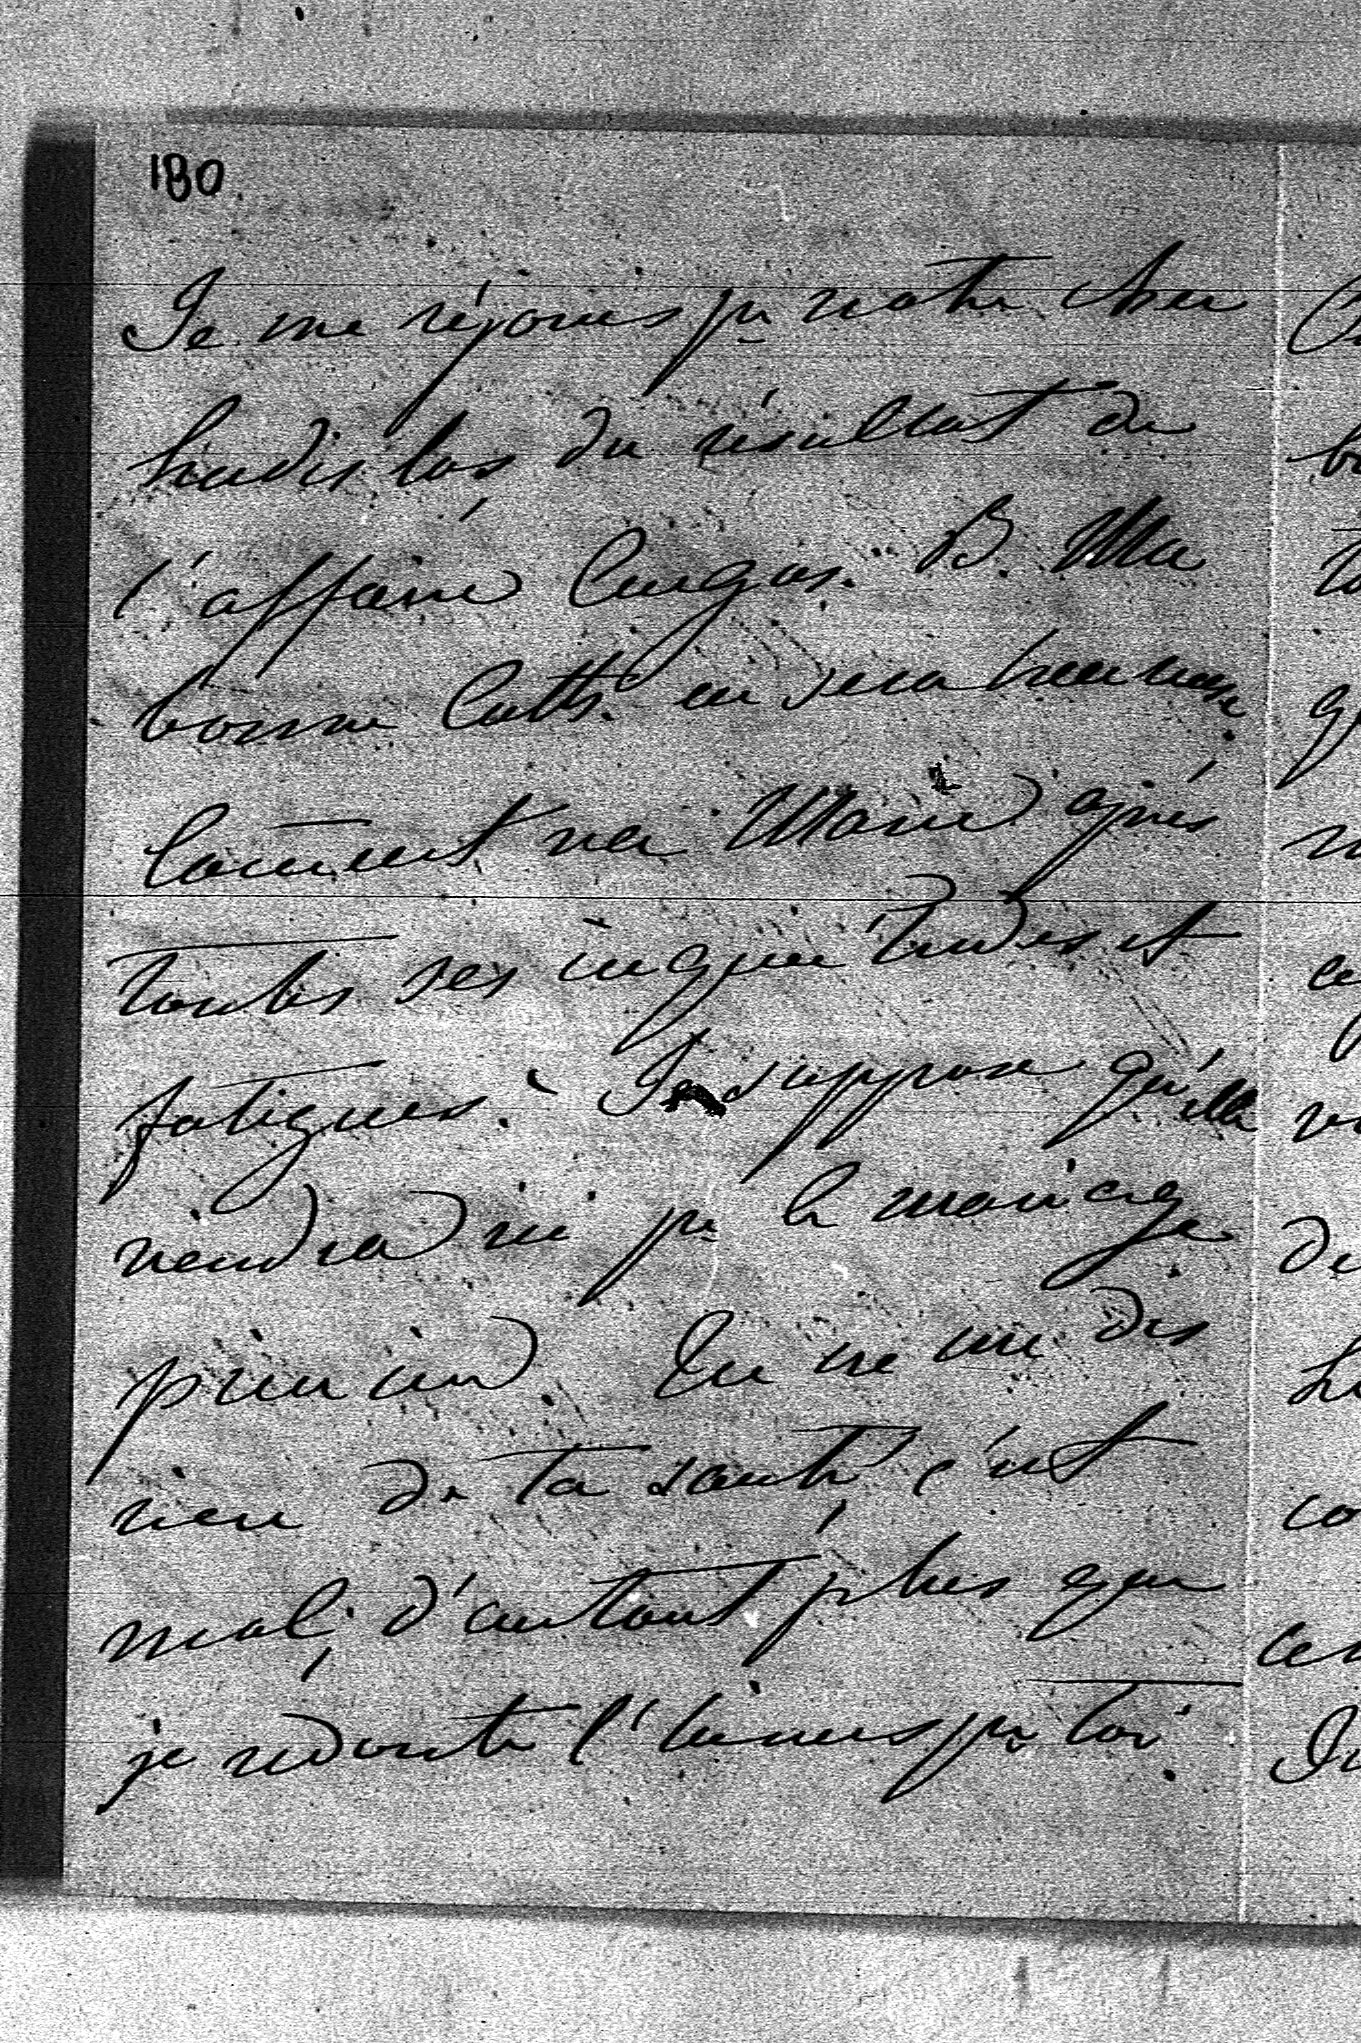 180.
Je me réjouis pr notre cher
Ladislas du résultat de
l'affaire B. Ma
bonne Cath. en sera heureuse.
Comment va Marie après
toutes ses inquiétudes et
fatigues. Je suppose qu'elle
viendra ici pr le mariage
Tu ne me dis
rien de ta santé, c'est
mal, d'autant plus que
je redoute l'hiver pr toi.